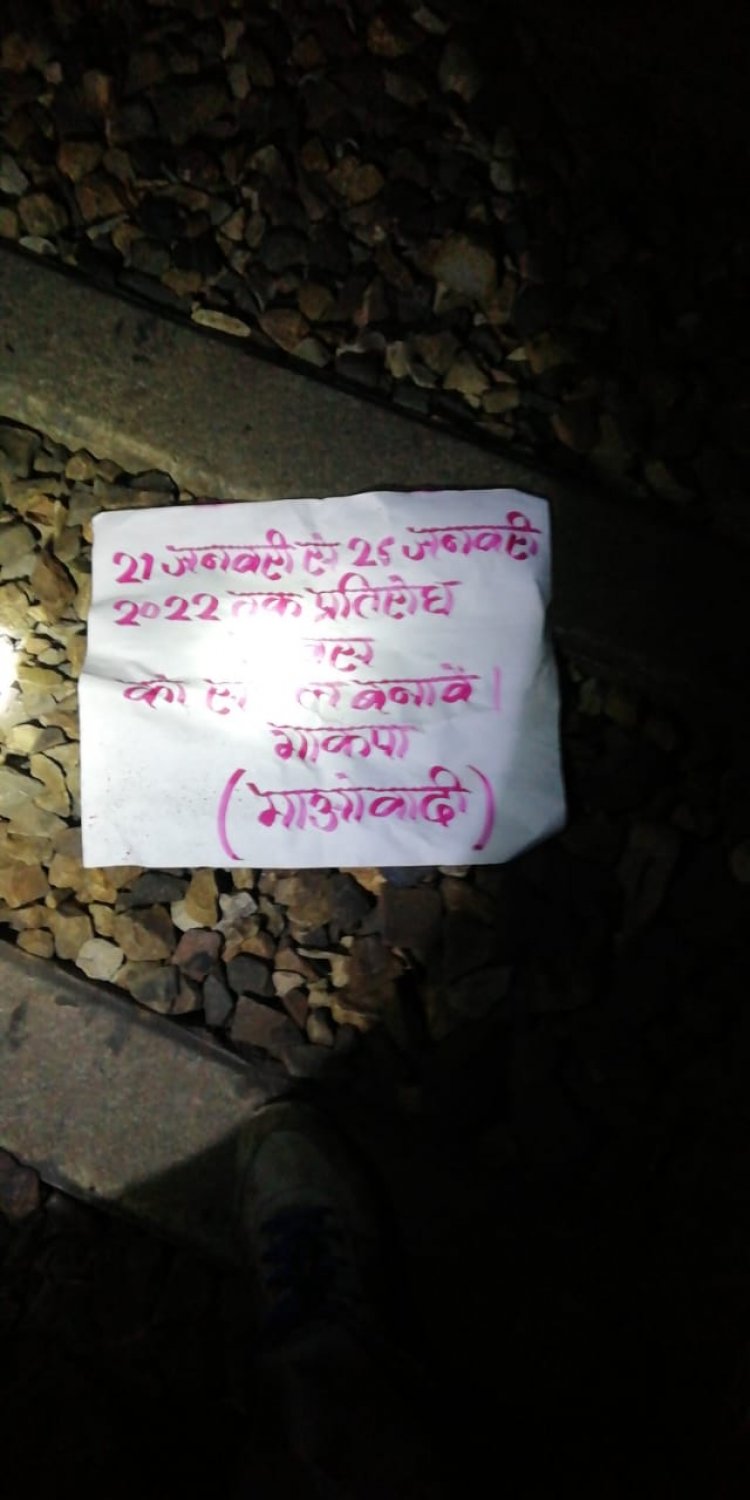 21 जनवरी से 26 जनवरी
2022 तक प्रतिरोध
को बनावें।
भाकपा
(माओवादी)